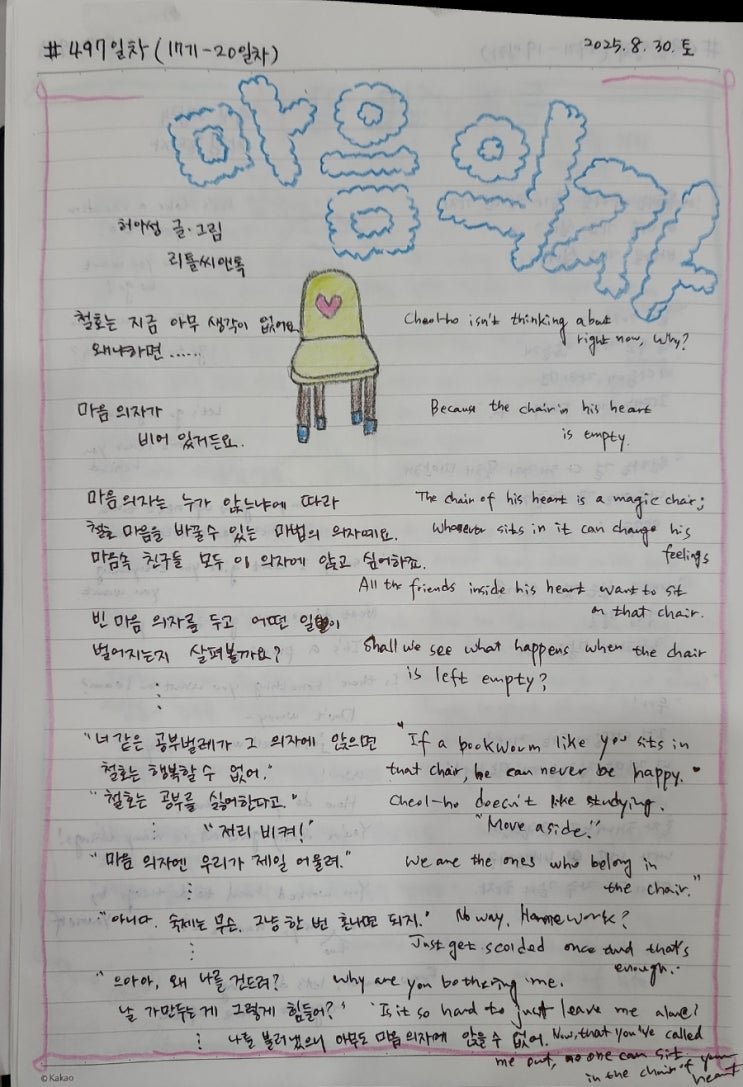 #497일차(17기-20일차)
2025. 8. 30. 토
마음의자
허아성 글·그림
리틀씨앤톡
철호는 지금 아무 생각이 없어요
Cheol-ho isn't thinking about
왜냐하면......
right now, Why?
마음 의자가
Because the chair in his heart
비어 있거든요.
is empty.
마음 의자는 누가 앉느냐에 따라
The chair of his heart is a magic chair;
철호 마음을 바꿀 수 있는 마법의 의자예요.
Whoever sits in it can change his
feelings
마음속 친구들 모두 이 의자에 앉고 싶어하죠.
All the friends inside his heart want to sit
on that chair.
빈 마음 의자를 두고 어떤 일이
벌어지는지 살펴볼까요?
Shall we see what happens when the chair
is left empty?
"너 같은 공부벌레가 그 의자에 앉으면
"If a bookworm like you sits in
철호는 행복할 수 없어."
that chair, he can never be happy."
"철호는 공부를 싫어한다고."
Cheol-ho doesn't like studying.
"저리 비켜!"
"Move aside!"
"마음 의자엔 우리가 제일 어울려."
We are the ones who belong in
the chair."
"아니다. 숙제는 무슨. 그냥 한 번 혼나면 되지."
No way. Homework?
Just get scolded once and that's
enough.
"으아아, 왜 나를 건드려?
Why are you bothering me.
날 가만두는게 그렇게 힘들어?'
'Is it so hard to just leave me alone?
나를 불러냈으니 아무도 마음 의자에 앉을 수 없어.
Now, that you've called
me out, no one can sit
in the chair of your
heart
© Kakao